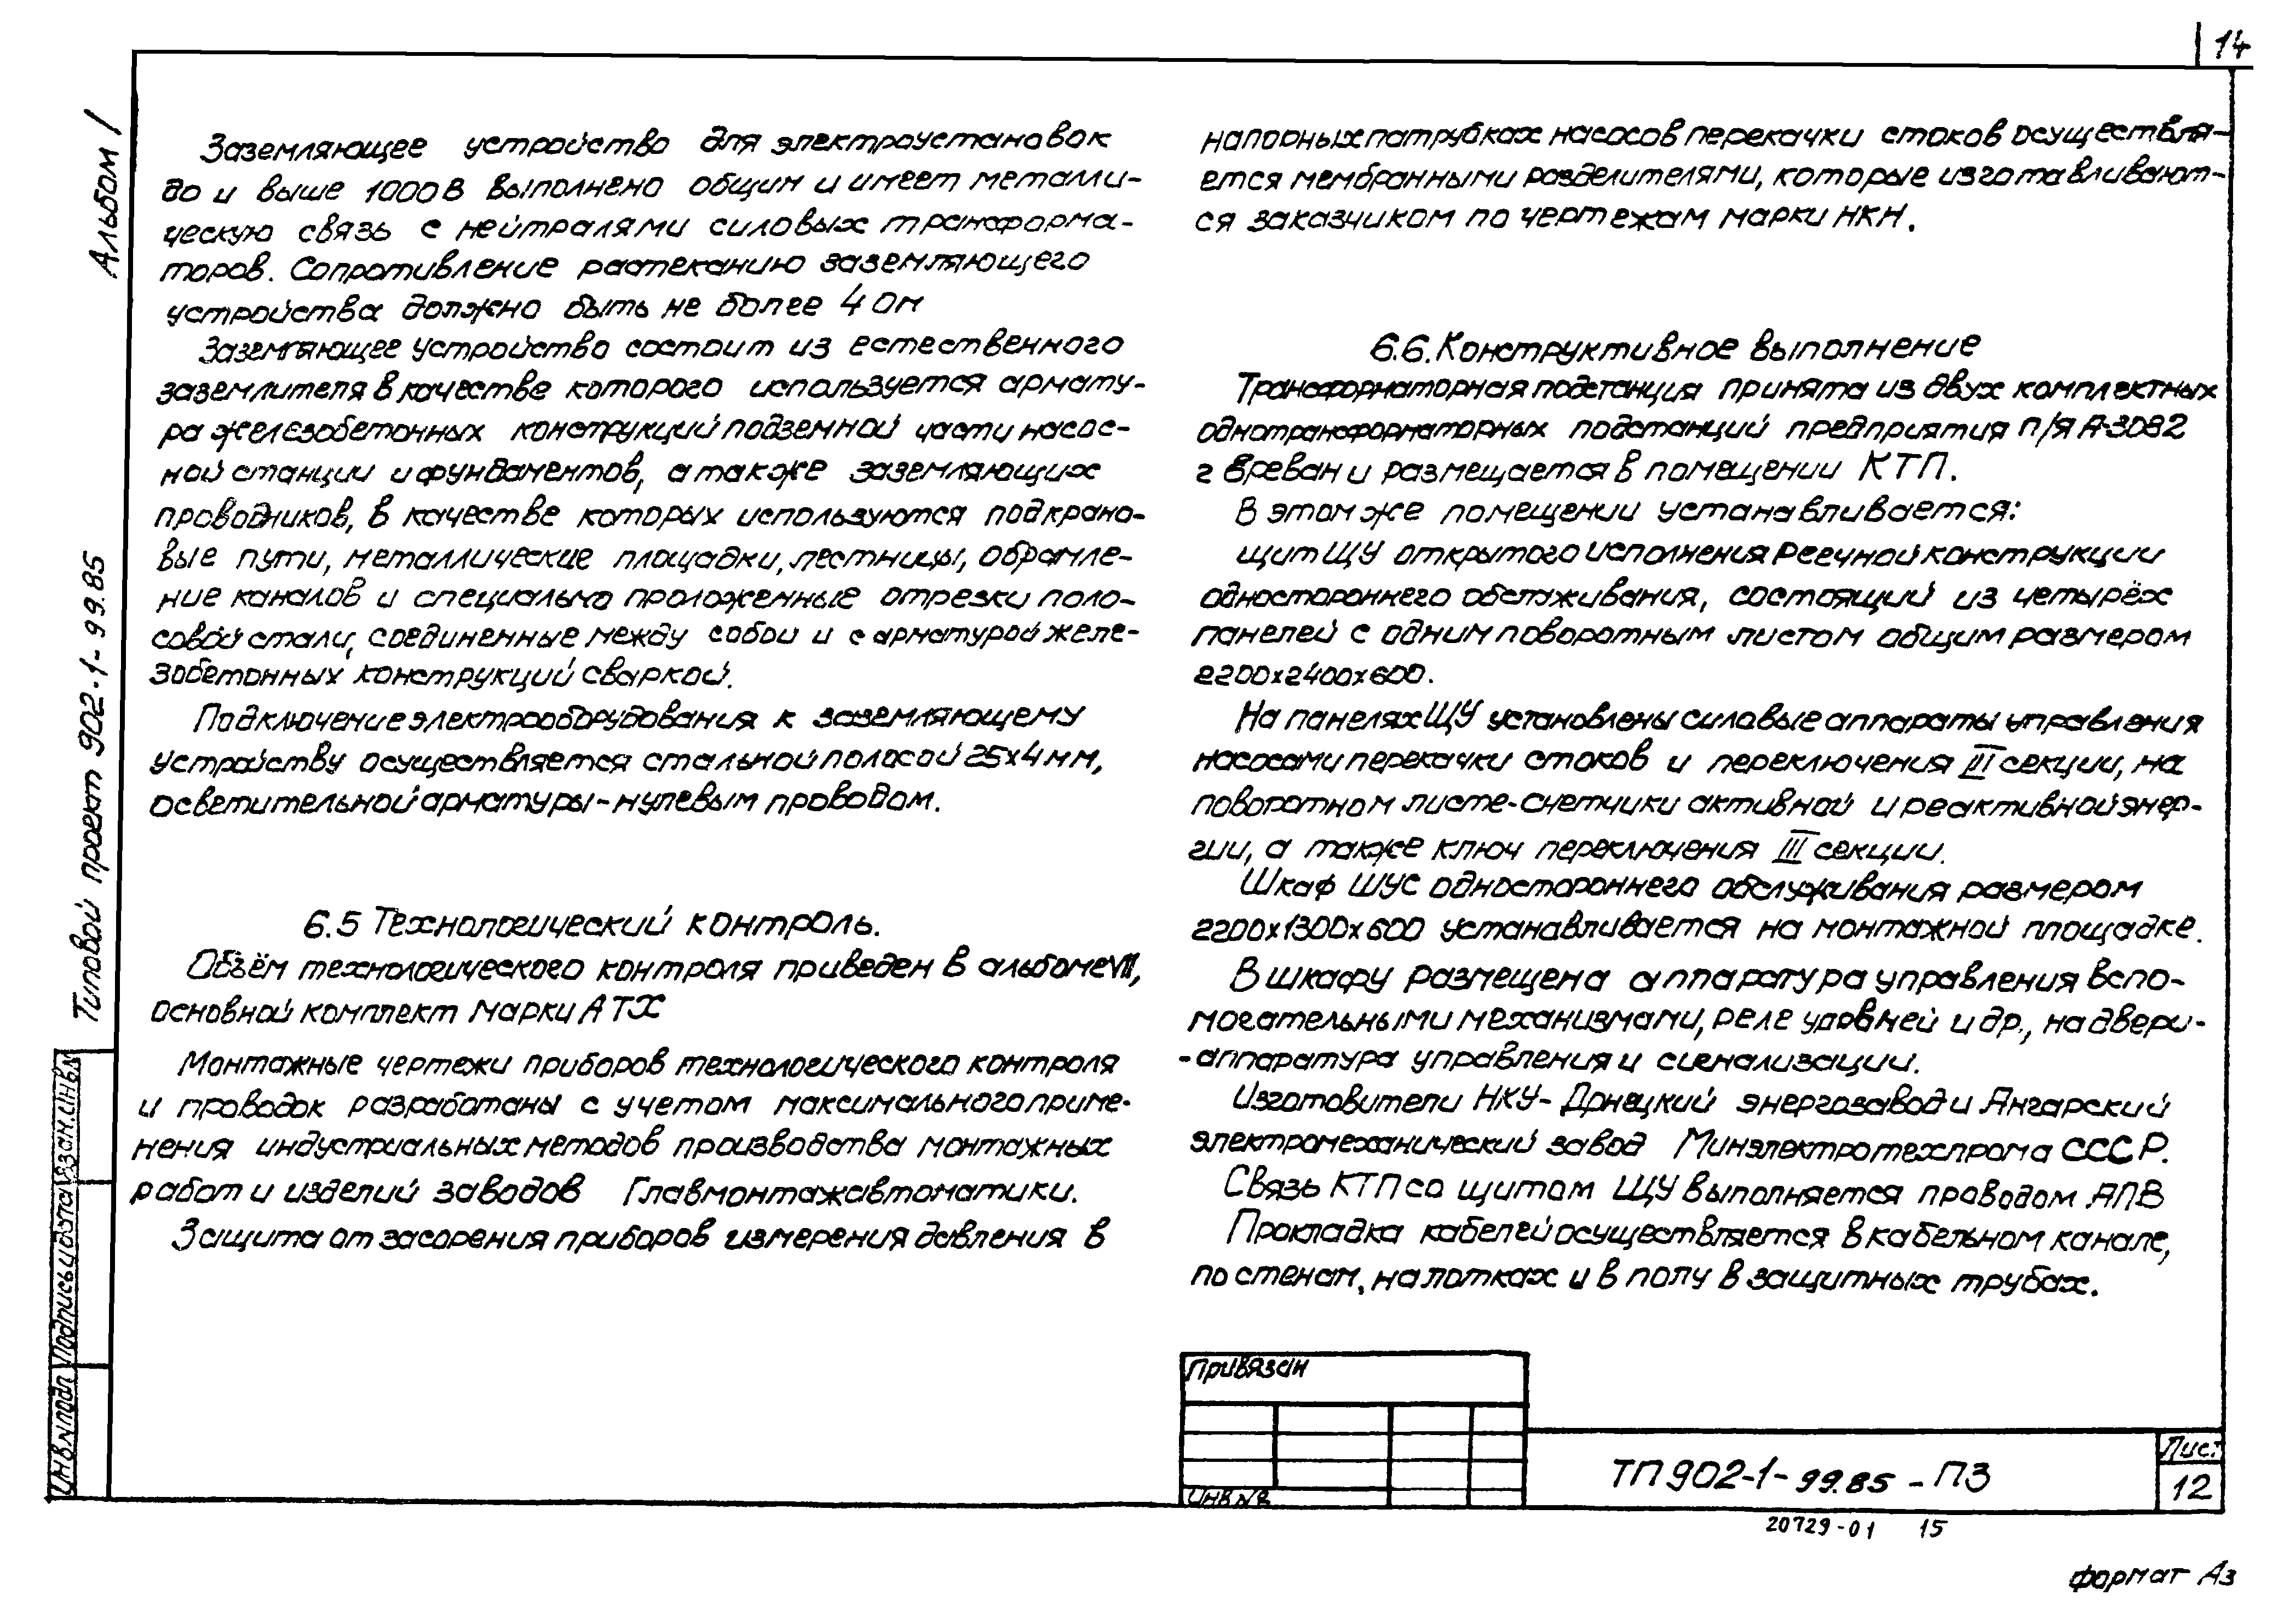 14
Альбом I
Типовой проект 902-1-99.85
Заземляющее устройство для электроустановок
до и выше 1000 В выполнено общим и имеет металли-
ческую связь с нейтралями силовых трансформа-
торов. Сопротивление растеканию заземляющего
устройства должно быть не более 4 Ом
Заземляющее устройство состоит из естественного
заземлителя в качестве которого используется армату-
ра железобетонных конструкций подземной части насос-
ной станции и фундаментов, а также заземляющих
проводников, в качестве которых используются подкрано-
вые пути, металлические площадки, лестницы, обрамле-
ние каналов и специально проложенные отрезки поло-
совой стали, соединенные между собой и с арматурой желе-
зобетонных конструкций сваркой.
Подключение электрооборудования к заземляющему
устройству осуществляется стальной полосой 25х4 мм,
осветительной арматуры-нулевым проводом.
6.5 Технологический контроль.
Объём технологического контроля приведен в альбоме VII,
основной комплект марки АТХ
Монтажные чертежи приборов технологического контроля
и проводок разработаны с учетом максимального приме-
нения индустриальных методов производства монтажных
работ и изделий заводов Главмонтажавтоматики.
Защита от засорения приборов измерения давления в
напорных патрубках насосов перекачки стоков осуществля-
ется мембранными разделителями, которые изготавливают-
ся заказчиком по чертежам марки НКН.
6.6. Конструктивное выполнение
Трансформаторная подстанция принята из двух комплектных
однотрансформаторных подстанций предприятия п/я А-3082
г Ереван и размещается в помещении КТП.
В этом же помещении устанавливается:
щит ЩУ открытого исполнения реечной конструкции
одностороннего обслуживания, состоящий из четырёх
панелей с одним поворотным листом общим размером
2200х2400х600.
На панелях ЩУ установлены силовые аппараты управления
насосами перекачки стоков и переключения III секции, на
поворотном листе-счетчики активной и реактивной энер-
гии, а также ключ переключения III секции.
Шкаф ШУС одностороннего обслуживания размером
2200х1300х600 устанавливается на монтажной площадке.
В шкафу размещена аппаратура управления вспо-
могательными механизмами, реле уровней и др., на двери-
-аппаратура управления и сигнализации.
Изготовители НКУ- Донецкий энергозавод и Ангарский
электромеханический завод Минэлектротехпрома СССР.
Связь КТП со щитом ЩУ выполняется проводом АПВ
Прокладка кабелей осуществляется в кабельном канале,
по стенам, на лотках и в полу в защитных трубах.
Инв N подл Подпись и дата Взам. инв. N
Привязан
Инв №
ТП 902-1-99.85 -ПЗ
Лист
12
20729-01 15
формат А3